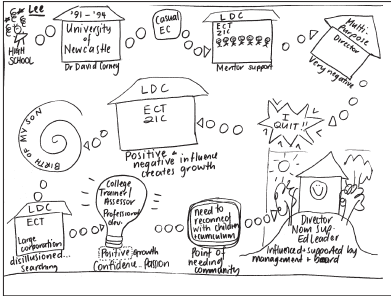 Lee
HIGH
SCHOOL
'91 - '94
University
of
Newcastle
Dr David Corney
Casual
EC
LDC
ECT
2IC
Mentor support
Multi-
Purpose
Director
Very negative
I
QUIT!!
LDC
ECT
2IC
Positive +
negative influence
creates growth
BIRTH OF MY SON
LDC
ECT
Large
corporation
disillusioned...
searching
College
Trainer/
Assessor
Professional
dev.
Positive growth
Confidence. Passion
need to
reconnect
with children
+ curriculum
Point of
needing
community
Director
Nom Sup.
Ed Leader
Influenced + supported by
management + board